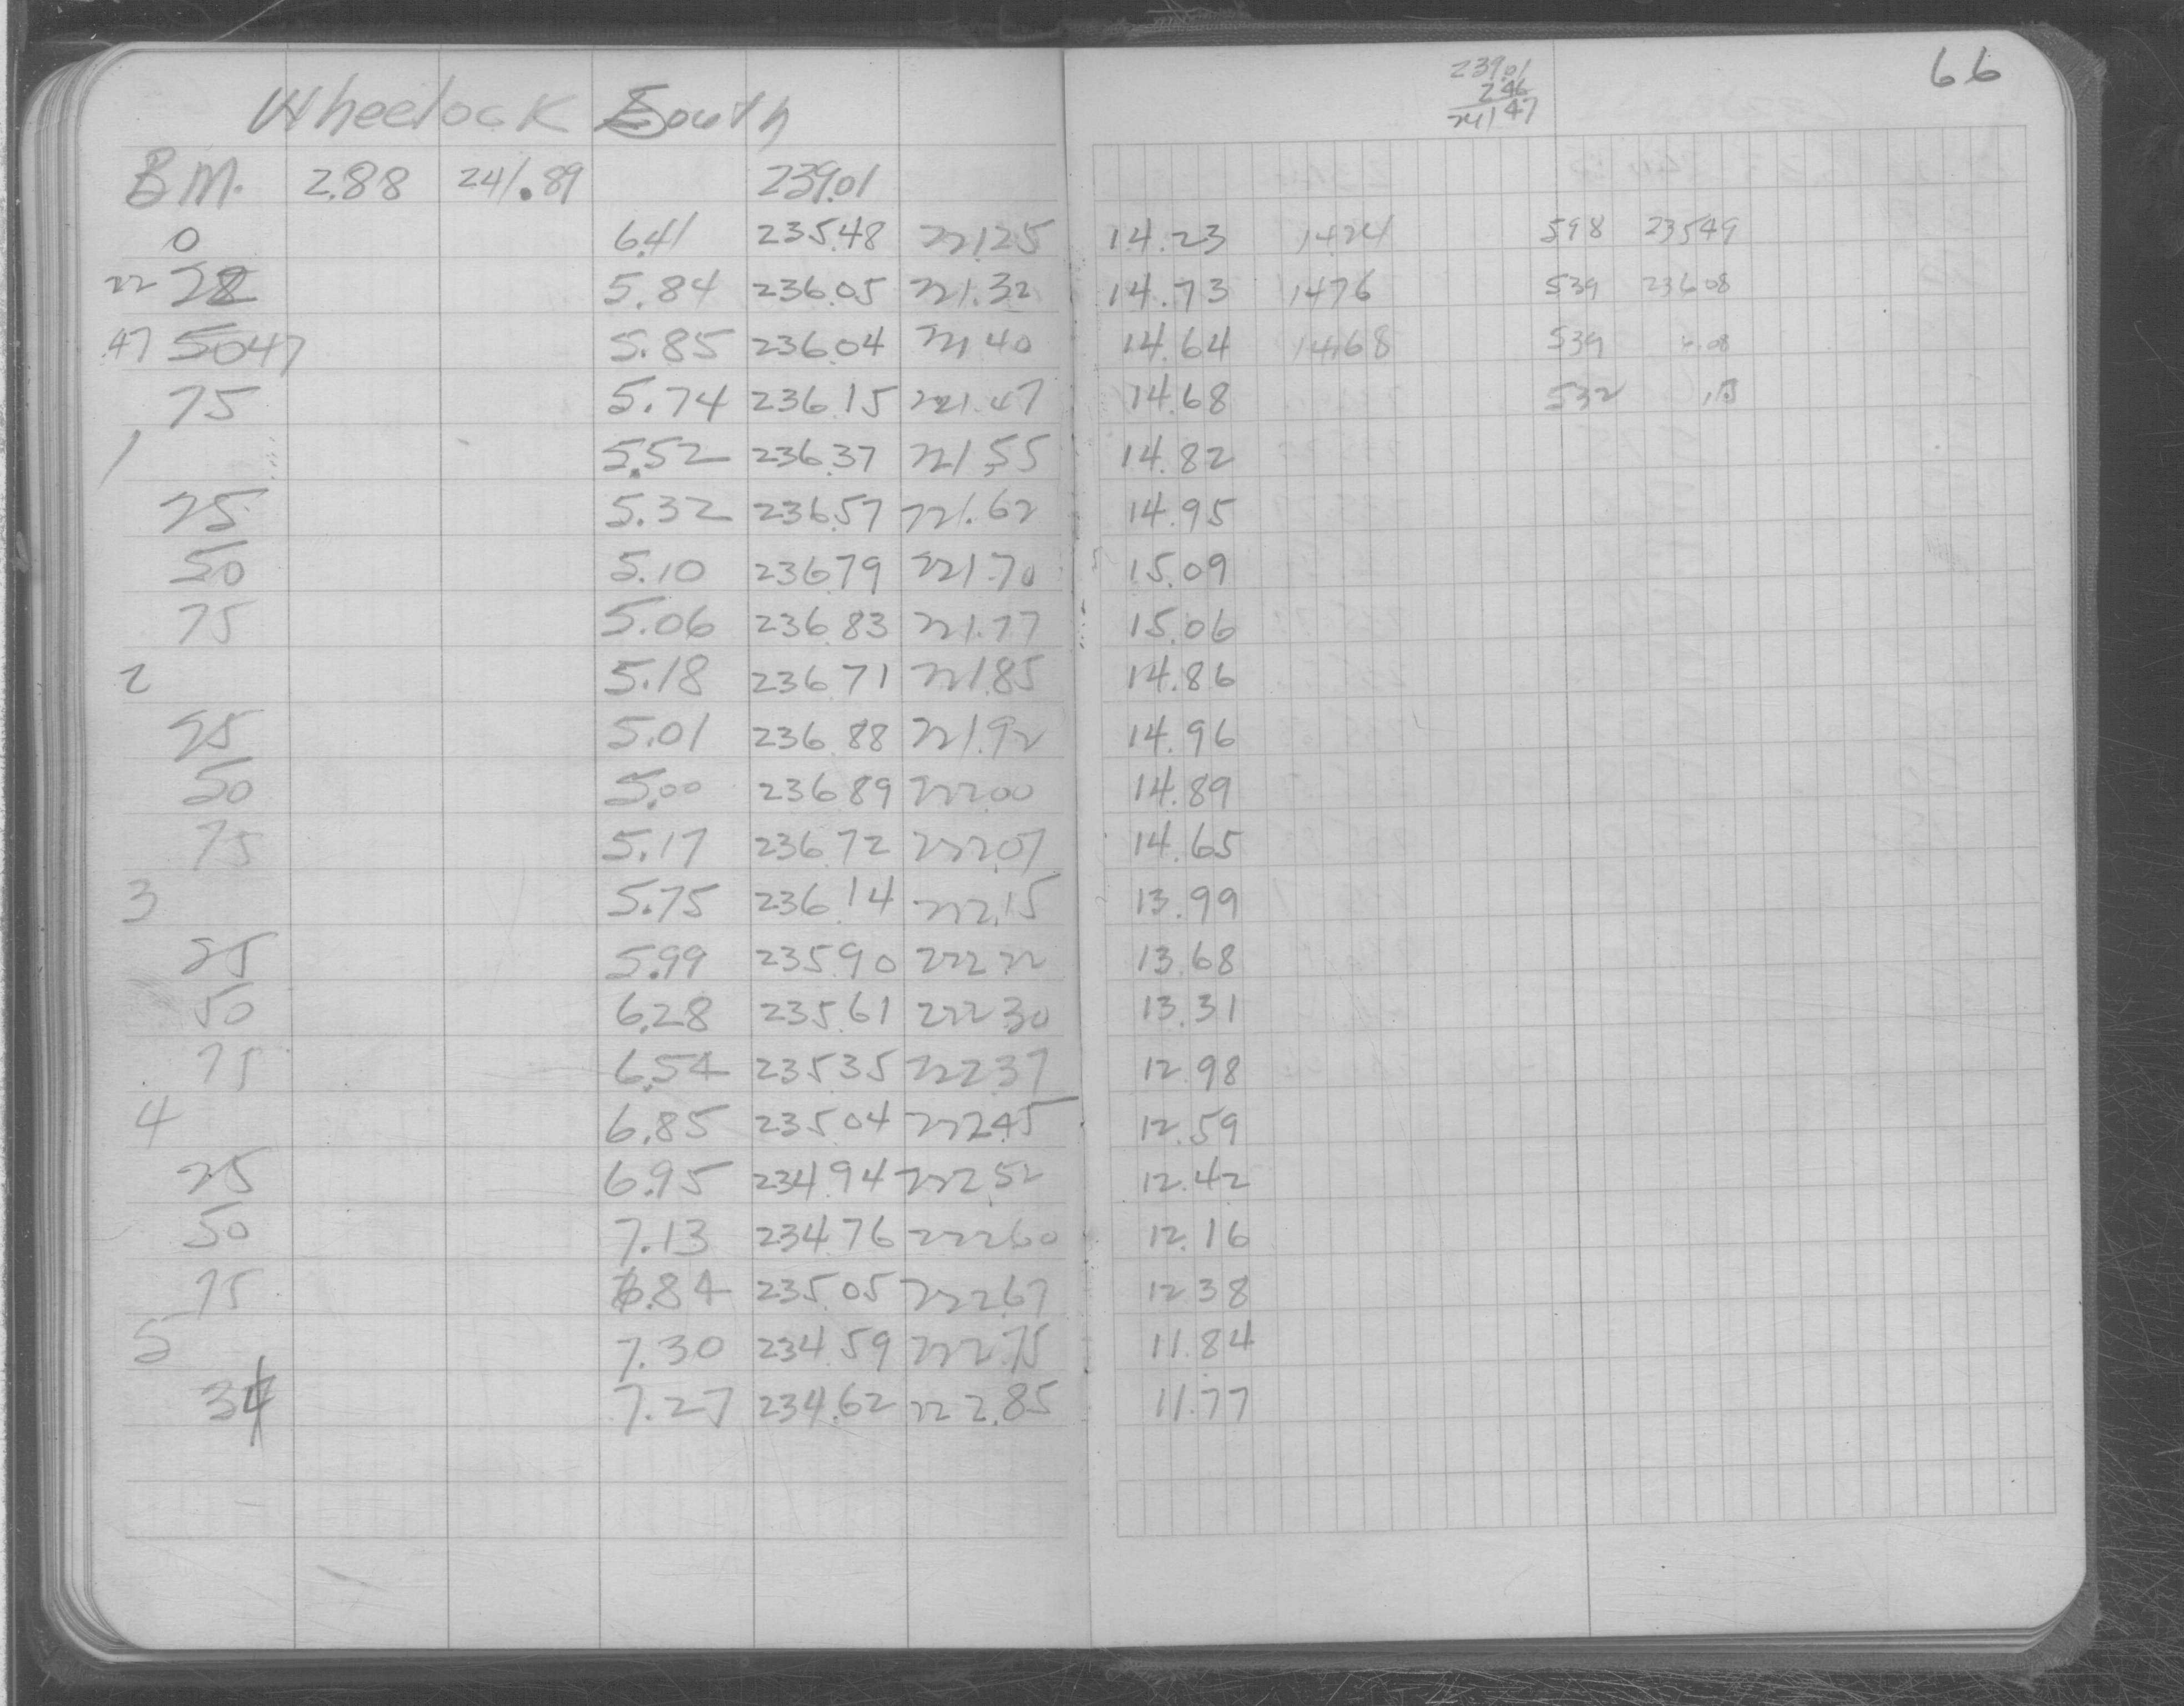 66
239.01
2.46
241.47
Wheelock South
B.M. 2.88 241.89 239.01
0 6.41 235.48 221.25 14.23 14.24 598 23549
22 28 5.84 236.05 221.32 14.73 1476 539 23608
47 5047 5.85 236.04 221.40 14.64 1468 539 6.08
75 5.74 236.15 221.47 14.68 532 .15
1 5.52 236.37 221.55 14.82
25 5.32 236.57 221.62 14.95
50 5.10 236.79 221.70 15.09
75 5.06 236.83 221.77 15.06
2 5.18 236.71 221.85 14.86
25 5.01 236.88 221.92 14.96
50 5.00 236.89 222.00 14.89
75 5.17 236.72 222.07 14.65
3 5.75 236.14 222.15 13.99
25 5.99 235.90 222.22 13.68
50 6.28 235.61 222.30 13.31
75 6.54 235.35 222.37 12.98
4 6.85 235.04 222.45 12.59
25 6.95 234.94 222.52 12.42
50 7.13 234.76 222.60 12.16
75 6.84 235.05 222.67 12.38
5 7.30 234.59 222.75 11.84
34 7.27 234.62 222.85 11.77